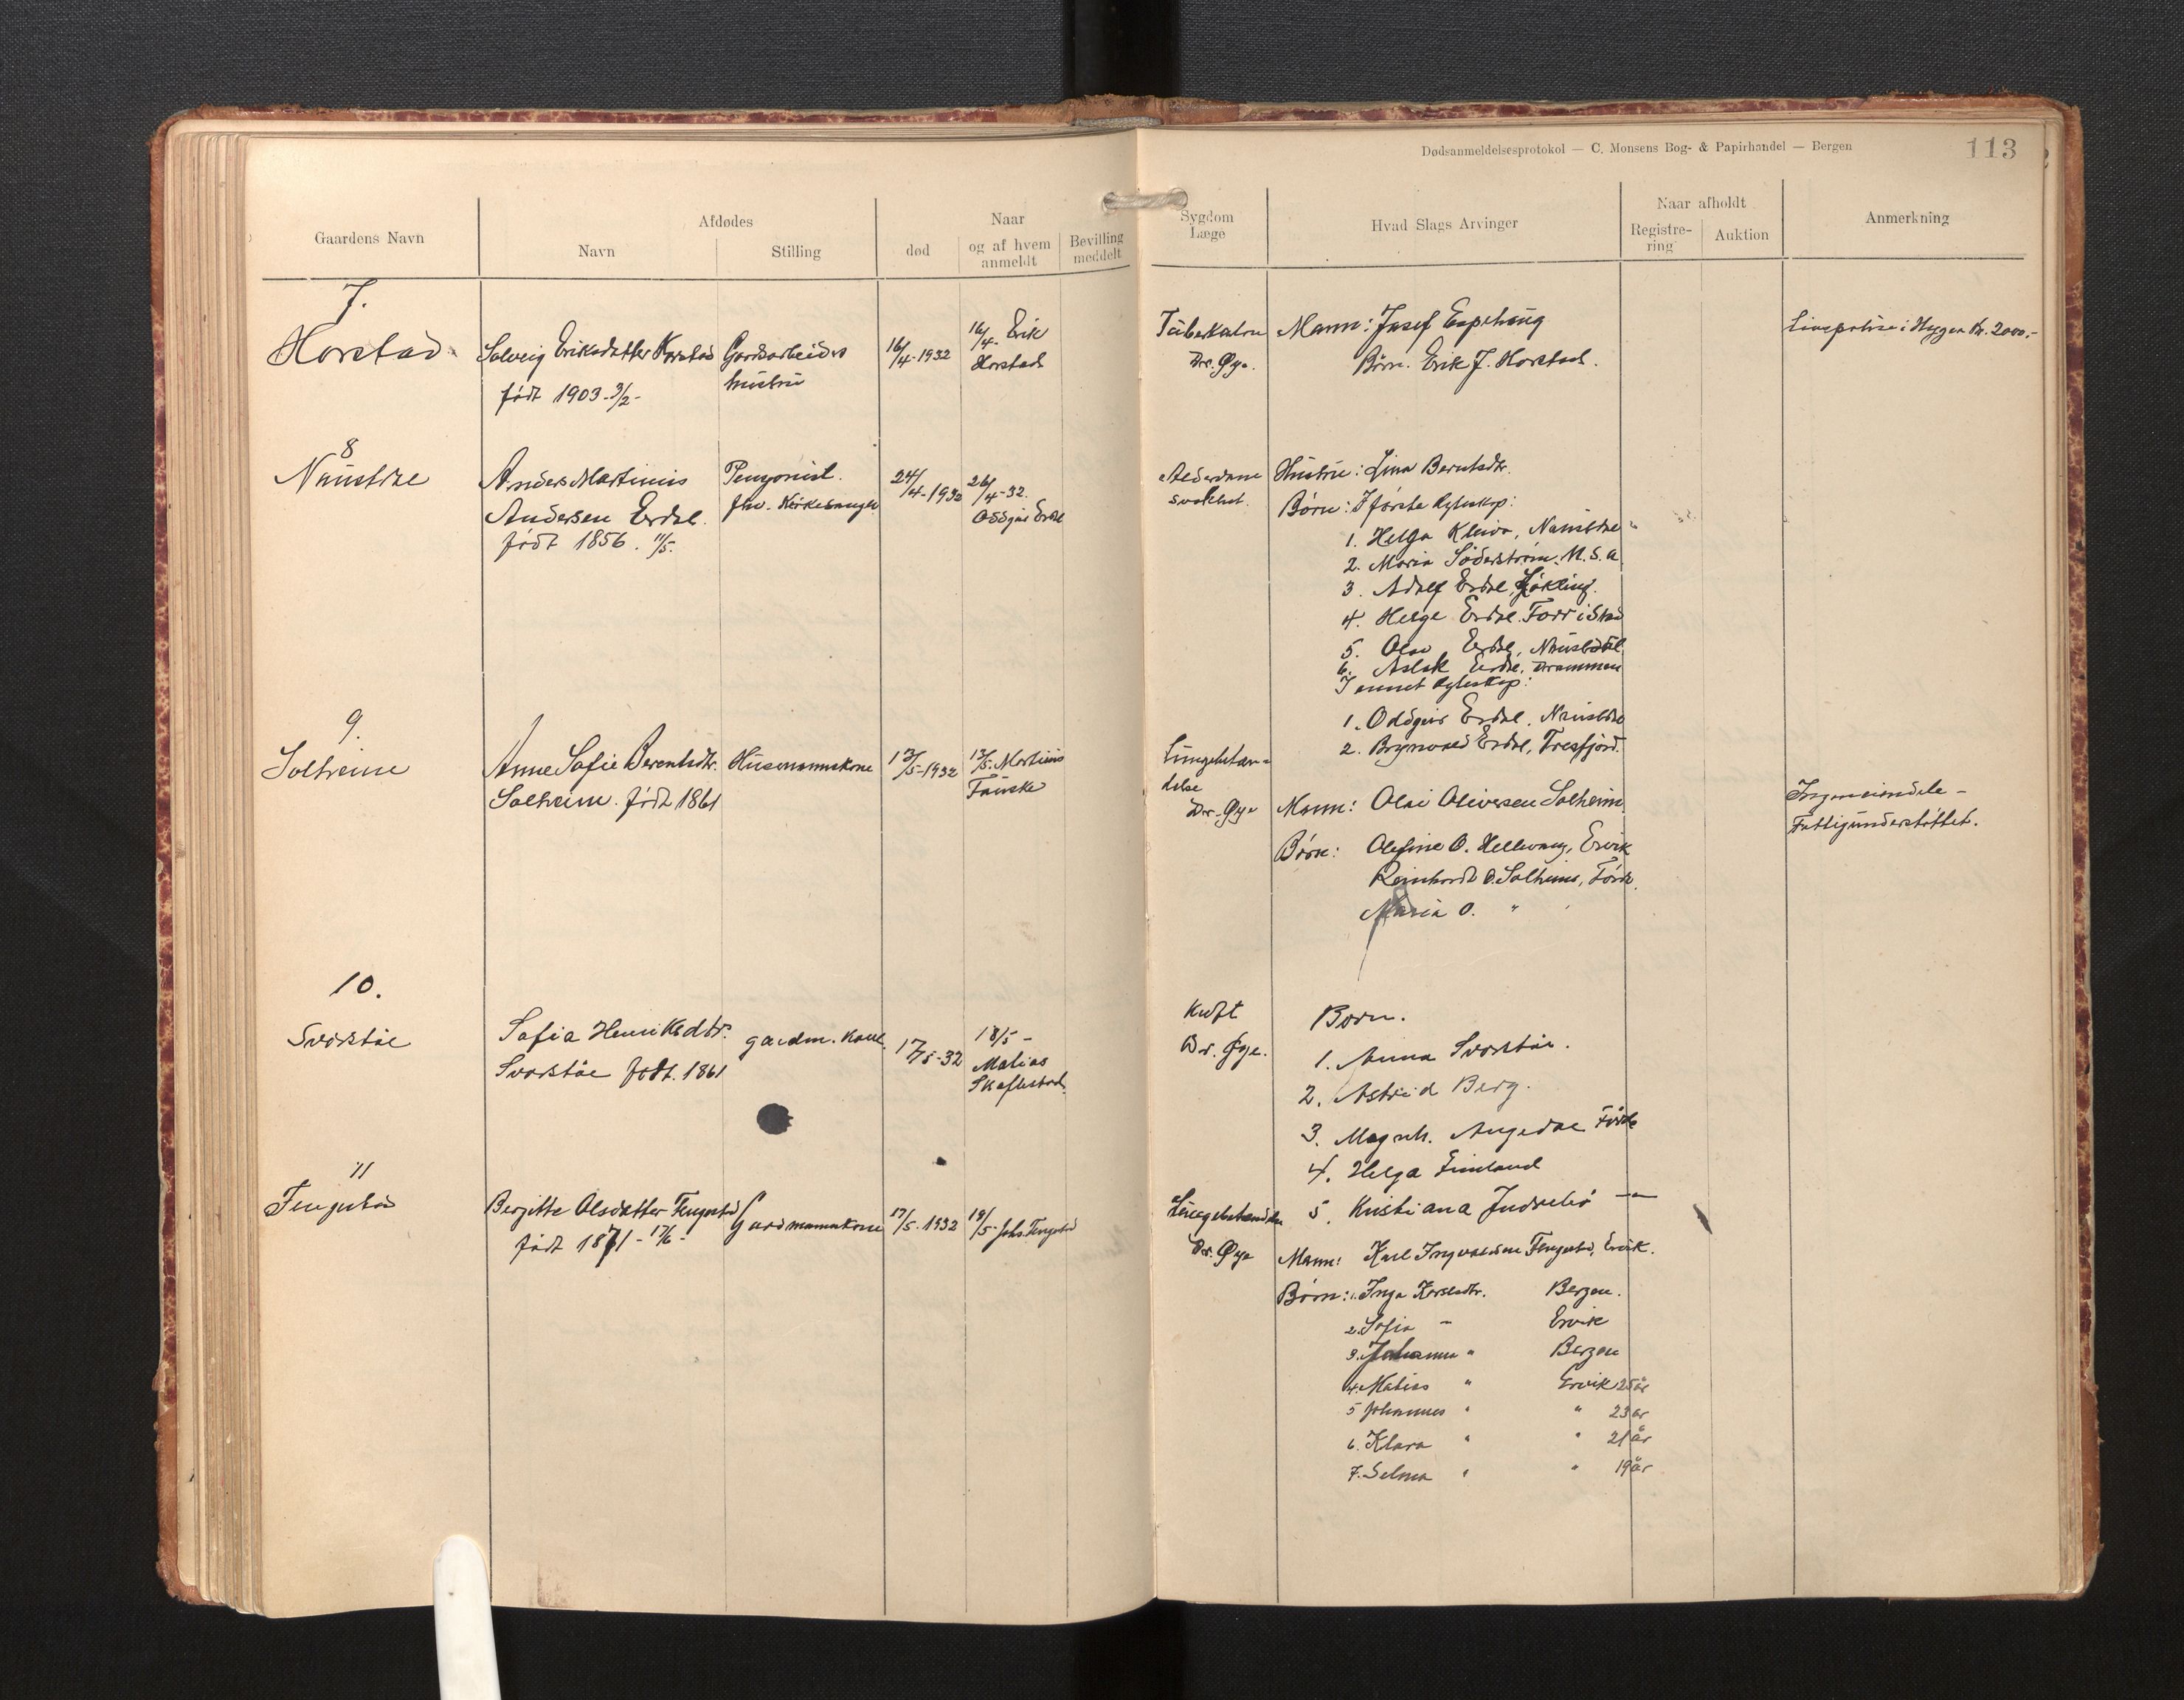 Dødsanmeldelsesprotokol — C. Monsens Bog- & Papirhandel — Bergen
113
Gaardens Navn
Afdødes
Navn
Stilling
Naar
død
og af hvem anmeldt
Bevilling meddelt
Sygdom
Læge
Hvad Slags Arvinger
Naar afholdt
Registre-
ring
Auktion
Anmerkning
7.
Horstad
Solveig Eriksdatter Horstad
født 1903 - 3/2 -
Gardsarbeiders
hustru
16/4-1932
16/4. Erik
Horstad
Tuberkulose
Dr. Øye.
Mann: Josef Espehaug
Børn. Erik J. Horstad.
Livspolise i Hygea Kr. 2000.-
8
Naustdal
Anders Martinus
Andersen Erdal.
født 1856. 11/5.
Pensjonist.
fhv. Kirkesanger
24/4-1932
26/4-32.
Oddgeir Erdal
Alderdoms
svakhet.
Hustru: Lina Berntsdtr.
Børn: I første Ægteskap:
1. Helga Kleiva, Naustdal
2. Maria Söderström. U.S.A
3. Adolf Erdal,
4. Helge Erdal.
5. Olav Erdal, Naustdal
6. Aslak Erdal, Drammen
I annet Ægteskap:
1. Oddgeir Erdal. Naustdal
2. Brynvald Erdal, Tresfjord.
9.
Solheim
Anne Sofie Berentsdtr.
Solheim. født 1861
Husmannskone
13/5-1932
13/5. Martinus
Fauske
Lungebeten-
delse
Dr. Øye
Mann: Olai Oliversen Solheim
Børn: Olefine O. Hellevang, Ervik
Reinhardt O. Solheim, Førde.
Maria O. "
Ingen eiendele -
Fattigunderstøttet.
10.
Svorstøe
Sofia Henriksdtr.
Svorstøe født. 1861
gardm. kone.
17/5-32
18/5 -
Matias
Skaflestad.
Kreft
Dr. Øye.
Børn.
1. Anna Svorstøe.
2. Astrid Berg.
3. Magnh. Angedal Førde
4. Helga Fimland
5. Kristiana Indrebø —"—
11
Fengestad
Bergitte Olsdatter Fengestad
født 1871 - 17/6 -
Gardmannskone
17/5-1932
19/5- Johs. Fengestad
Lungebetendelse
Dr. Øye
Mann: Karl Ingvaldsen Fengestad, Ervik.
Børn: 1. Inga Karlsdtr. Bergen.
2. Sofia " Ervik
3. Johanna " Bergen
4. Matias " Ervik 25 år
5 Johannes " " 23 år
6. Klara " " 21 år
7. Selma " " 19 år